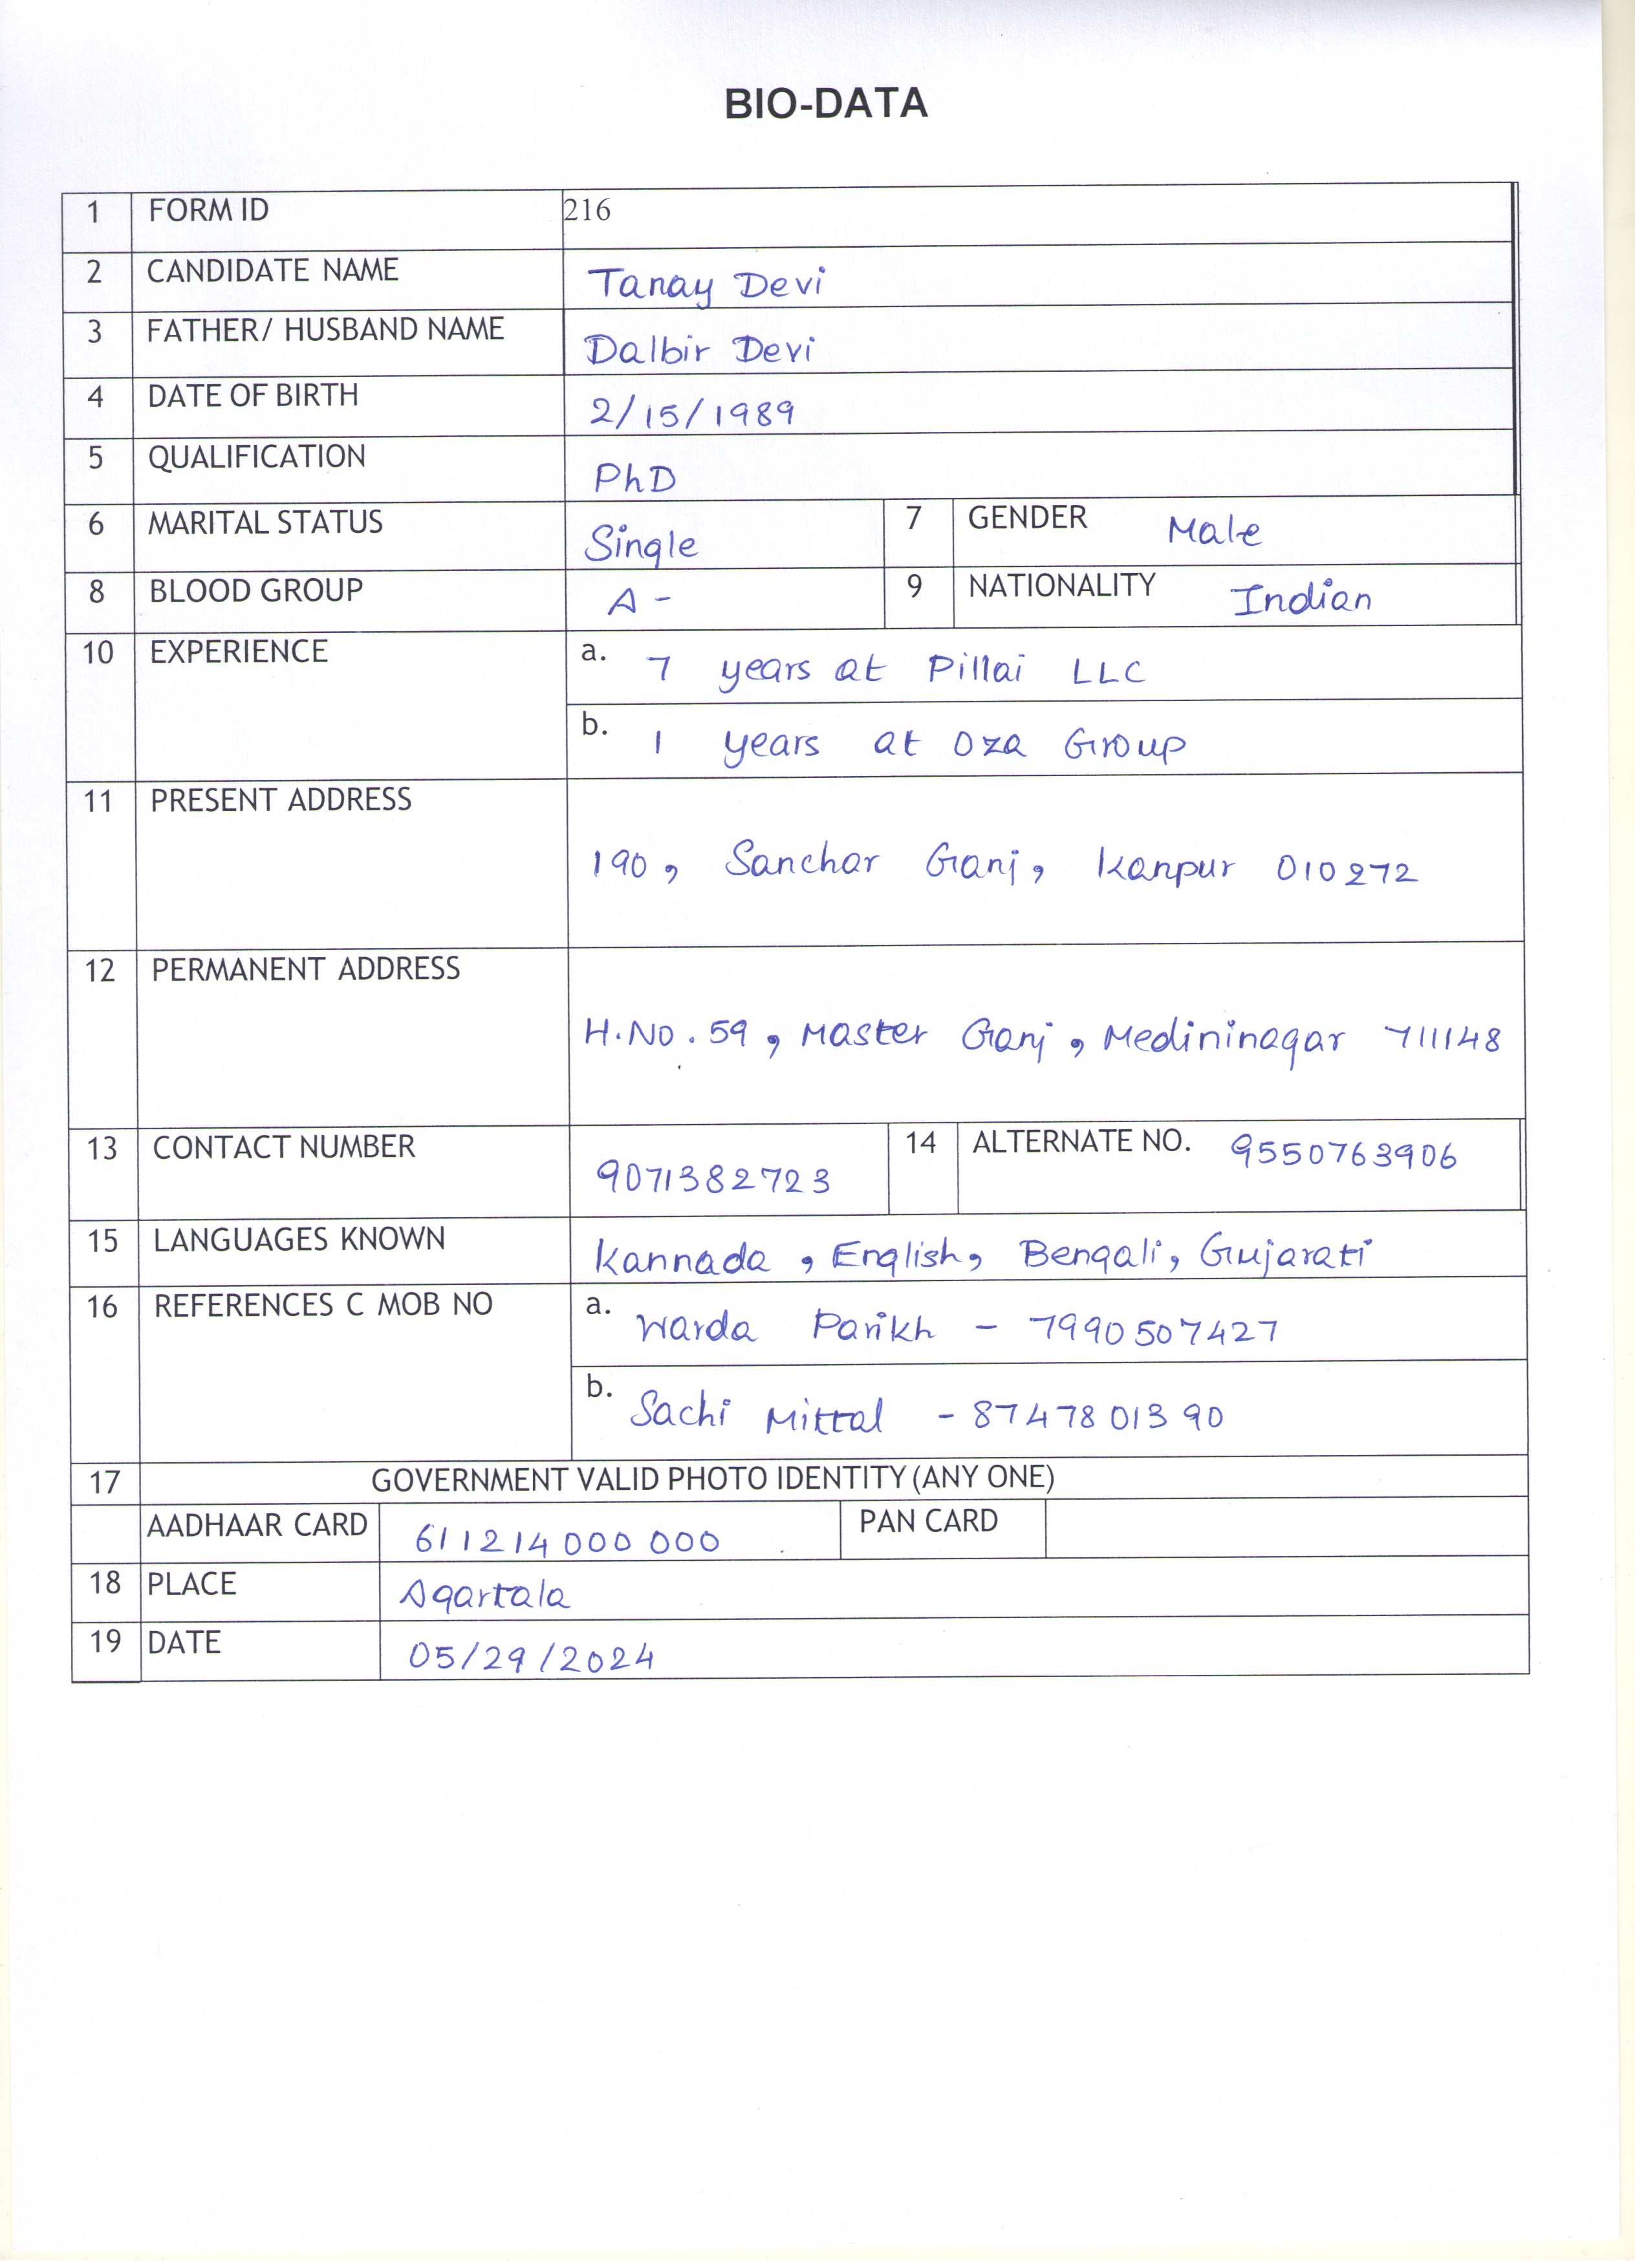 BIO-DATA
1 FORM ID 216
2 CANDIDATE NAME Tanay Devi
3 FATHER/ HUSBAND NAME Dalbir Devi
4 DATE OF BIRTH 2/15/1989
5 QUALIFICATION PhD
6 MARITAL STATUS Single 7 GENDER Male
8 BLOOD GROUP A- 9 NATIONALITY Indian
10 EXPERIENCE a. 7 years at Pillai LLC
b. 1 years at Oza Group
11 PRESENT ADDRESS
190, Sanchar Ganj, Kanpur 010272
12 PERMANENT ADDRESS
H.No. 59, Master Ganj, Medininagar 711148
13 CONTACT NUMBER 9071382723 14 ALTERNATE NO. 9550763906
15 LANGUAGES KNOWN Kannada, English, Bengali, Gujarati
16 REFERENCES C MOB NO a. Warda Parikh - 7990507427
b. Sachi Mittal - 8747801390
17 GOVERNMENT VALID PHOTO IDENTITY (ANY ONE)
AADHAAR CARD 611214000000 PAN CARD
18 PLACE Agartala
19 DATE 05/29/2024